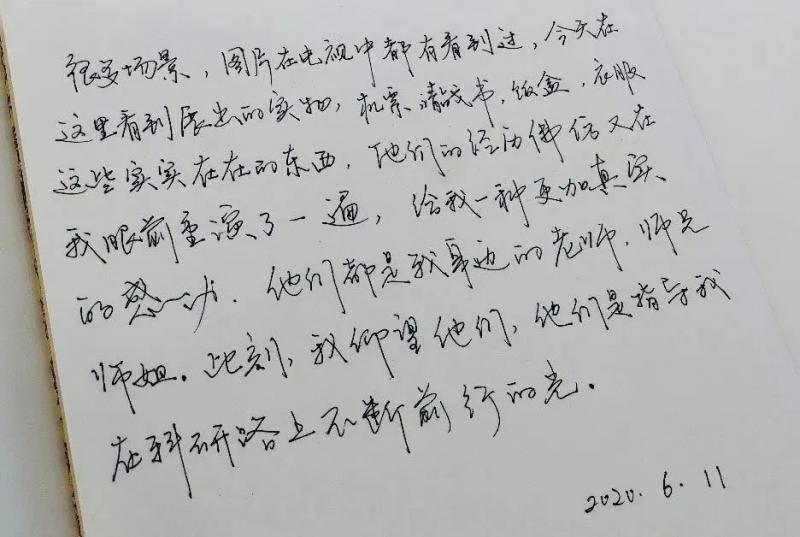 很多场景，图片在电视中都有看到过，今天在
这里看到展出的实物，机票、请战书、饭盒、衣服
这些实实在在的东西，他们的经历仿佛又在
我眼前重演了一遍，给我一种更加真实
的感动。他们都是我身边的老师、师兄
师姐。此刻，我仰望他们，他们是指导我
在科研路上不断前行的光。
2020.6.11